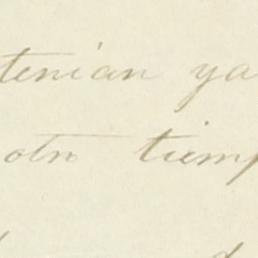 tenian ya
otro tiemp